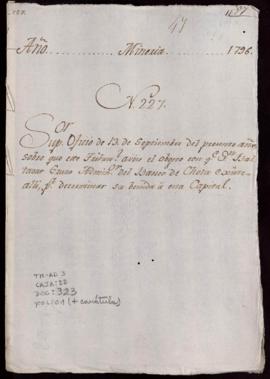 47
Año Mineria 1796
N. 227.
Sor
Sup. Oficio de 13. de Septiembre del presente año,
sobre que este Tribun.l avise el objeto con q.e Dn Bal
tazar Admin.r del Banco de Chota
p.a determinar su benida à esta Capital.
TM-AD 3
CAJA: 22
DOC: 323
FOLIO: 01 (+ carátula)